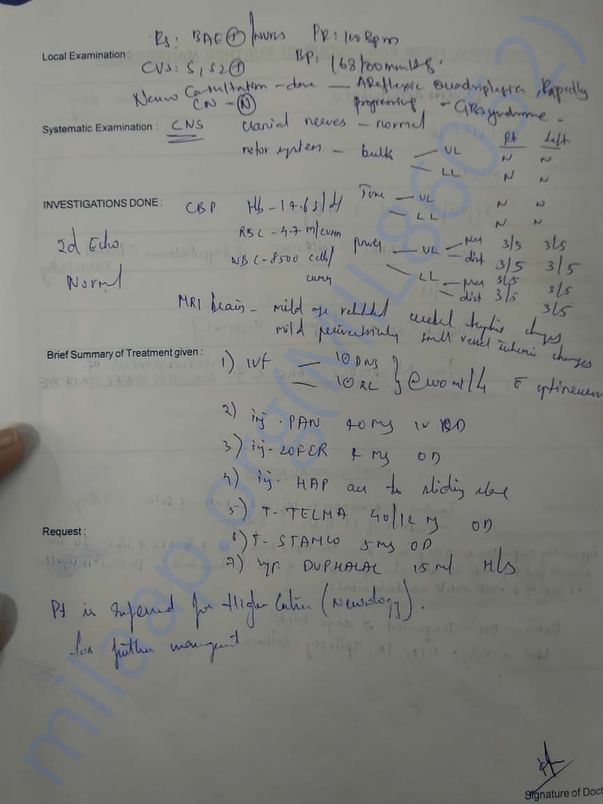 Rs: BAE ⊕ / NVBS PR: 110 Bpm
Local Examination : BP: 168/80 mmHg.
CVS: S1 S2 ⊕
Neuro Consultation - done — AReflexic quadriplegia, Rapidly
CN - Ⓝ progressing - GBSyndrome.
Systematic Examination : CNS cranial nerves - normal Rt Left
motor system - bulk — UL N N
LL N N
INVESTIGATIONS DONE : CBP Hb - 14.6 g/dl Tone — UL N N
LL N N
RBC - 4.7 m/cumm
2d Echo power — UL — prox 3/5 3/5
WBC - 8500 cells/ dist 3/5 3/5
cumm
Normal LL — prox 3/5
dist 3/5 3/5
MRI brain - mild age related cerebral atrophic changes
mild periventricular small vessel ischemic changes
Brief Summary of Treatment given :
1) IVF — 10 DNS
— 10 RL } @ 100 ml/h
2) inj. PAN 40 mg IV
3) inj. ZOFER 4 mg OD
4) inj. HAP acc to sliding scale
5) T- TELMA 40/12 mg OD
Request :
6) T- STAMLO 5 mg OD
7) syp. DUPHALAC 15 ml H/s
Pt is referred for Higher Center (Neurology).
for further management
Signature of Doct
milaap.org(MIL86032)